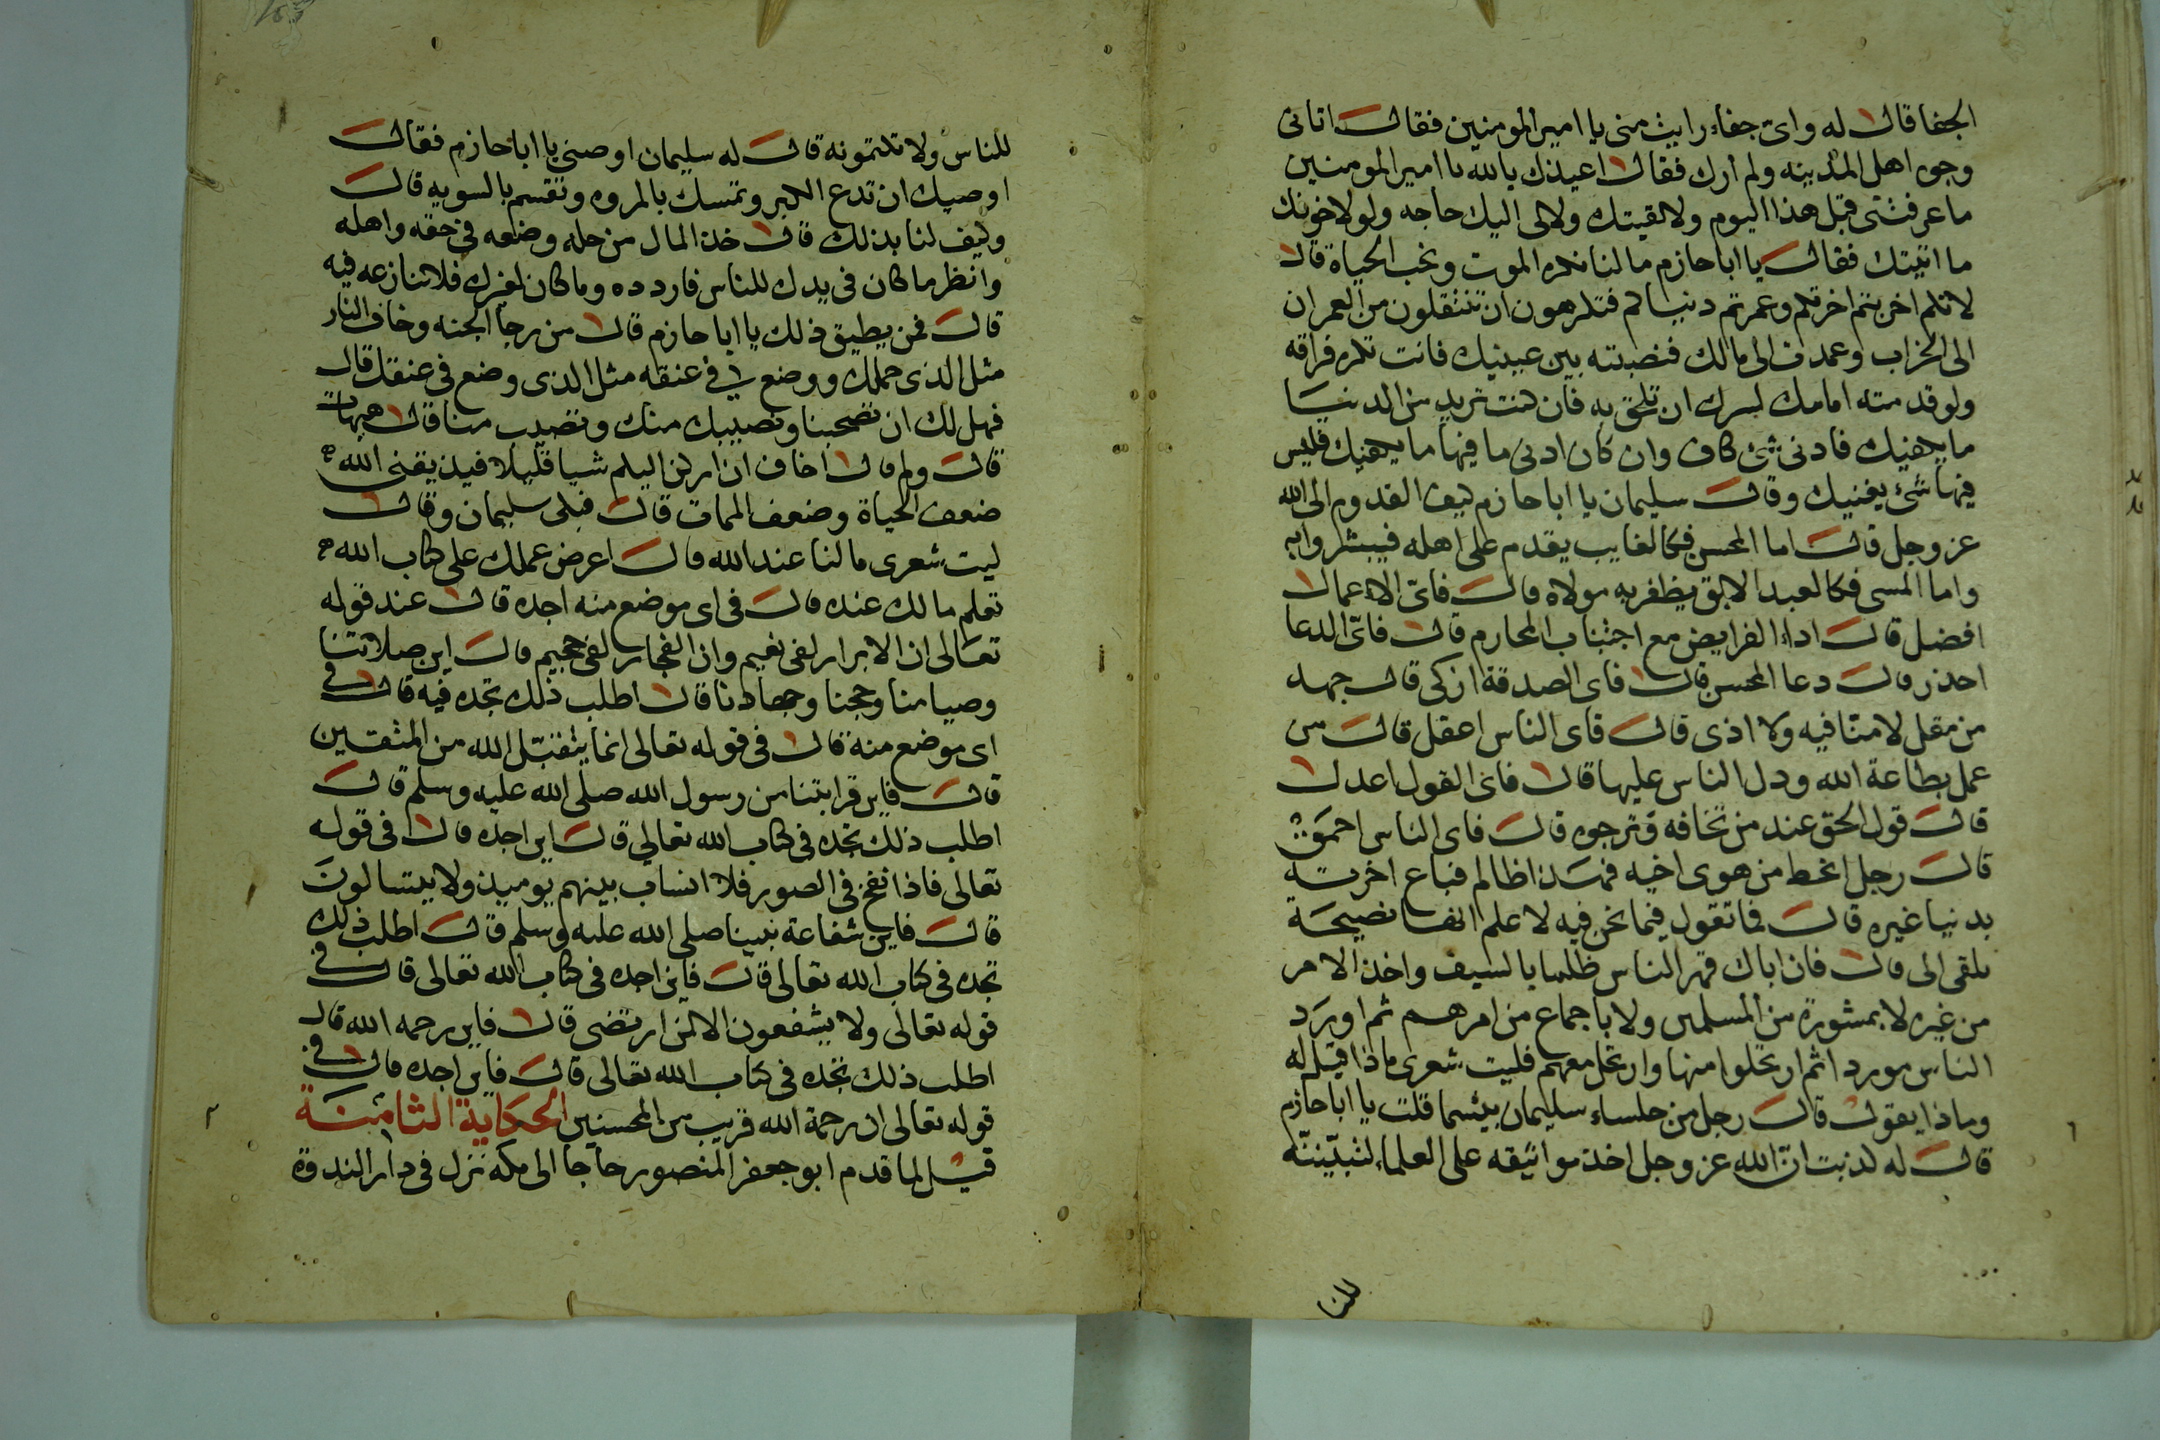 الجفا قال له واى جفاء رايت منى يا امير المومنين فقال اتانى
وجوه اهل المدينه ولم ارك فقال اعيذك بالله يا امير المومنين
ما عرفتنى قبل هذا اليوم ولا لقيتك ولا لى اليك حاجه ولولا خوفك
ما اتيتك فقال يا ابا حازم ما لنا نكره الموت ونحب الحياة قال
لانكم اخربتم اخرتكم وعمرتم دنياكم فتكرهون ان تنتقلون من العمران
الى الخراب وعمدت الى مالك فنصبته بين عينيك فانت تكره فراقه
ولو قدمته امامك لسرك ان تلحق به فان كنت تريد من الدنيا
ما يكفيك فادنى شئ كاف وان كان ادنى ما فيها ما يكفيك فليس
فيها شئ يغنيك وقال سليمان يا ابا حازم كيف القدوم الى الله
عز وجل قال اما المحسن فكالغايب يقدم على اهله فيبشروا به
واما المسى فكالعبد الابق يظفر به مولاه قال فاىّ الاعمال
افضل قال اداء الفرايض مع اجتناب المحارم قال فاىّ الدعا
احذر قال دعا المحسن قال فاى الصدقة ازكى قال جهد
من مقل لا منّا فيه ولا اذى قال فاى الناس اعقل قال من
عمل بطاعة الله ودل الناس عليها قال فاى القول اعدل
قال قول الحق عند من تخافه وترجوه قال فاى الناس احمق
قال رجل انحط من هوى اخيه فهذا ظالم فباع اخرته
بدنيا غيره قال فما تقول فيما نحن فيه لا علم انها نصيحة
تلقى الى قال فان اباك قهر الناس ظلما بالسيف واخذ الامر
من غير لا بمشورة من المسلمين ولا باجماع من امرهم ثم اورد
الناس موردا ثم ارتحلوا منها وارتحل معهم فليت شعرى ماذا قيل له
وماذا يقول قال رجل من جلساء سليمان بيسما قلت يا ابا حازم
قال له كذبت انّ الله عز وجل اخذ مواثيقه على العلماء لتبيّننّه
للنا
للناس ولا تكتمونه قال له سليمان اوصنى يا ابا حازم فقال
اوصيك ان تدع الكبر وتمسك بالمروه وتقسم بالسويه قال
وكيف لنا بذلك قال خذ المال من حله وضعه فى حقه واهله
وانظر ما كان فى يدك للناس فاردده وما كان لغيرك فلا تنازعه فيه
قال فمن يطيق ذلك يا ابا حازم قال من رجا الجنه وخاف النار
مثل الذى حملك ووضع فى عنقه مثل الذى وضع فى عنقك قال
فهل لك ان تصحبنا ونصيبك منك وتصيب منا قال هيهات
قال ولم قال اخاف ان اركن اليكم شيا قليلا فيذيقنى الله
ضعف الحياة وضعف الممات قال فبكى سليمان وقال
ليت شعرى ما لنا عند الله قال اعرض عملك على كتاب الله
تعلم مالك عنده قال فى اى موضع منه اجده قال عند قوله
تعالى ان الابرار لفى نعيم وان الفجار لفى جحيم قال اين صلاتنا
وصيامنا وحجنا وجهادنا قال اطلب ذلك تجده فيه قال فى
اى موضع منه قال فى قوله تعالى انما يتقبّل الله من المتقين
قال فاين قرابتنا من رسول الله صلى الله عليه وسلم قال
اطلب ذلك تجده فى كتاب الله تعالى قال اين اجده قال فى قوله
تعالى فاذا نفخ فى الصور فلا انساب بينهم يوميذ ولا يتسالون
قال فاين شفاعة نبينا صلى الله عليه وسلم قال اطلب ذلك
تجده فى كتاب الله تعالى قال فاين اجده فى كتاب الله تعالى قال فى
قوله تعالى ولا يشفعون الا لمن ارتضى قال فاين رحمه الله قال
اطلب ذلك تجده فى كتاب الله تعالى قال فاين اجده قال فى
قوله تعالى ان رحمة الله قريب من المحسنين الحكاية الثامنة
قيل لما قدم ابو جعفر المنصور حاجا الى مكه نزل فى دار الندوة